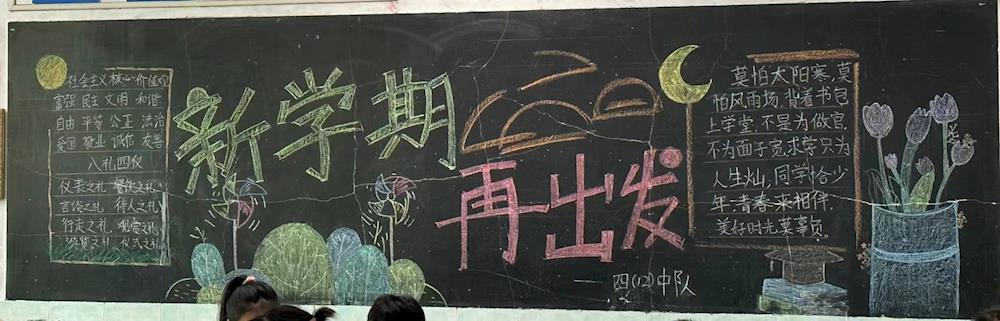 社会主义核心价值观
富强 民主 文明 和谐
自由 平等 公正 法治
爱国 敬业 诚信 友善
八礼四仪
仪表之礼 餐饮之礼
言谈之礼 待人之礼
行走之礼 观赏之礼
游览之礼 仪式之礼
新学期
再出发
四(12)中队
莫怕太阳寒,莫
怕风雨场,背着书包
上学堂,不是为做官,
不为面子宽,求学只为
人生灿,同学恰少
年,青春来相伴,
美好时光莫辜负。